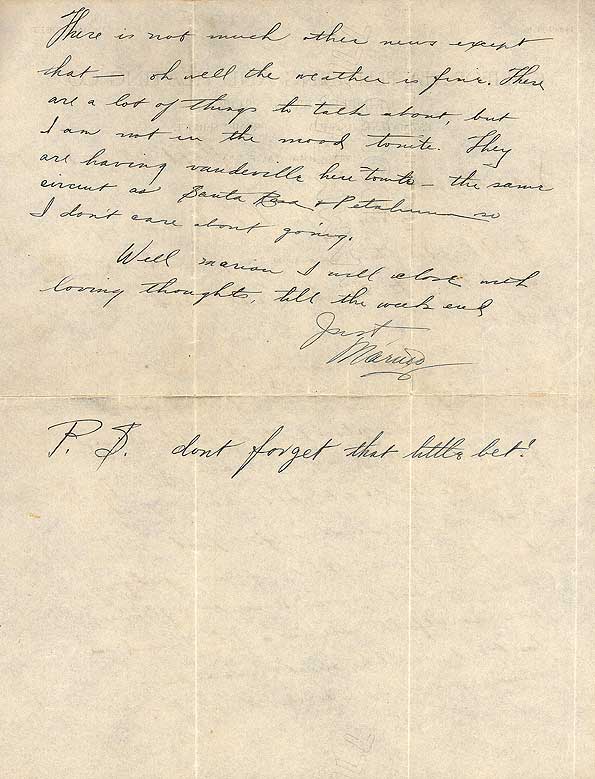 There is not much other news except
that — oh well the weather is fine. There
are a lot of things to talk about, but
I am not in the mood tonite. They
are having vaudeville here tonite — the same
circuit as Santa Rosa & Petaluma so
I don't care about going.
Well Marion I will close with
loving thoughts, till the week end
Just
P.S. dont forget that little bet!